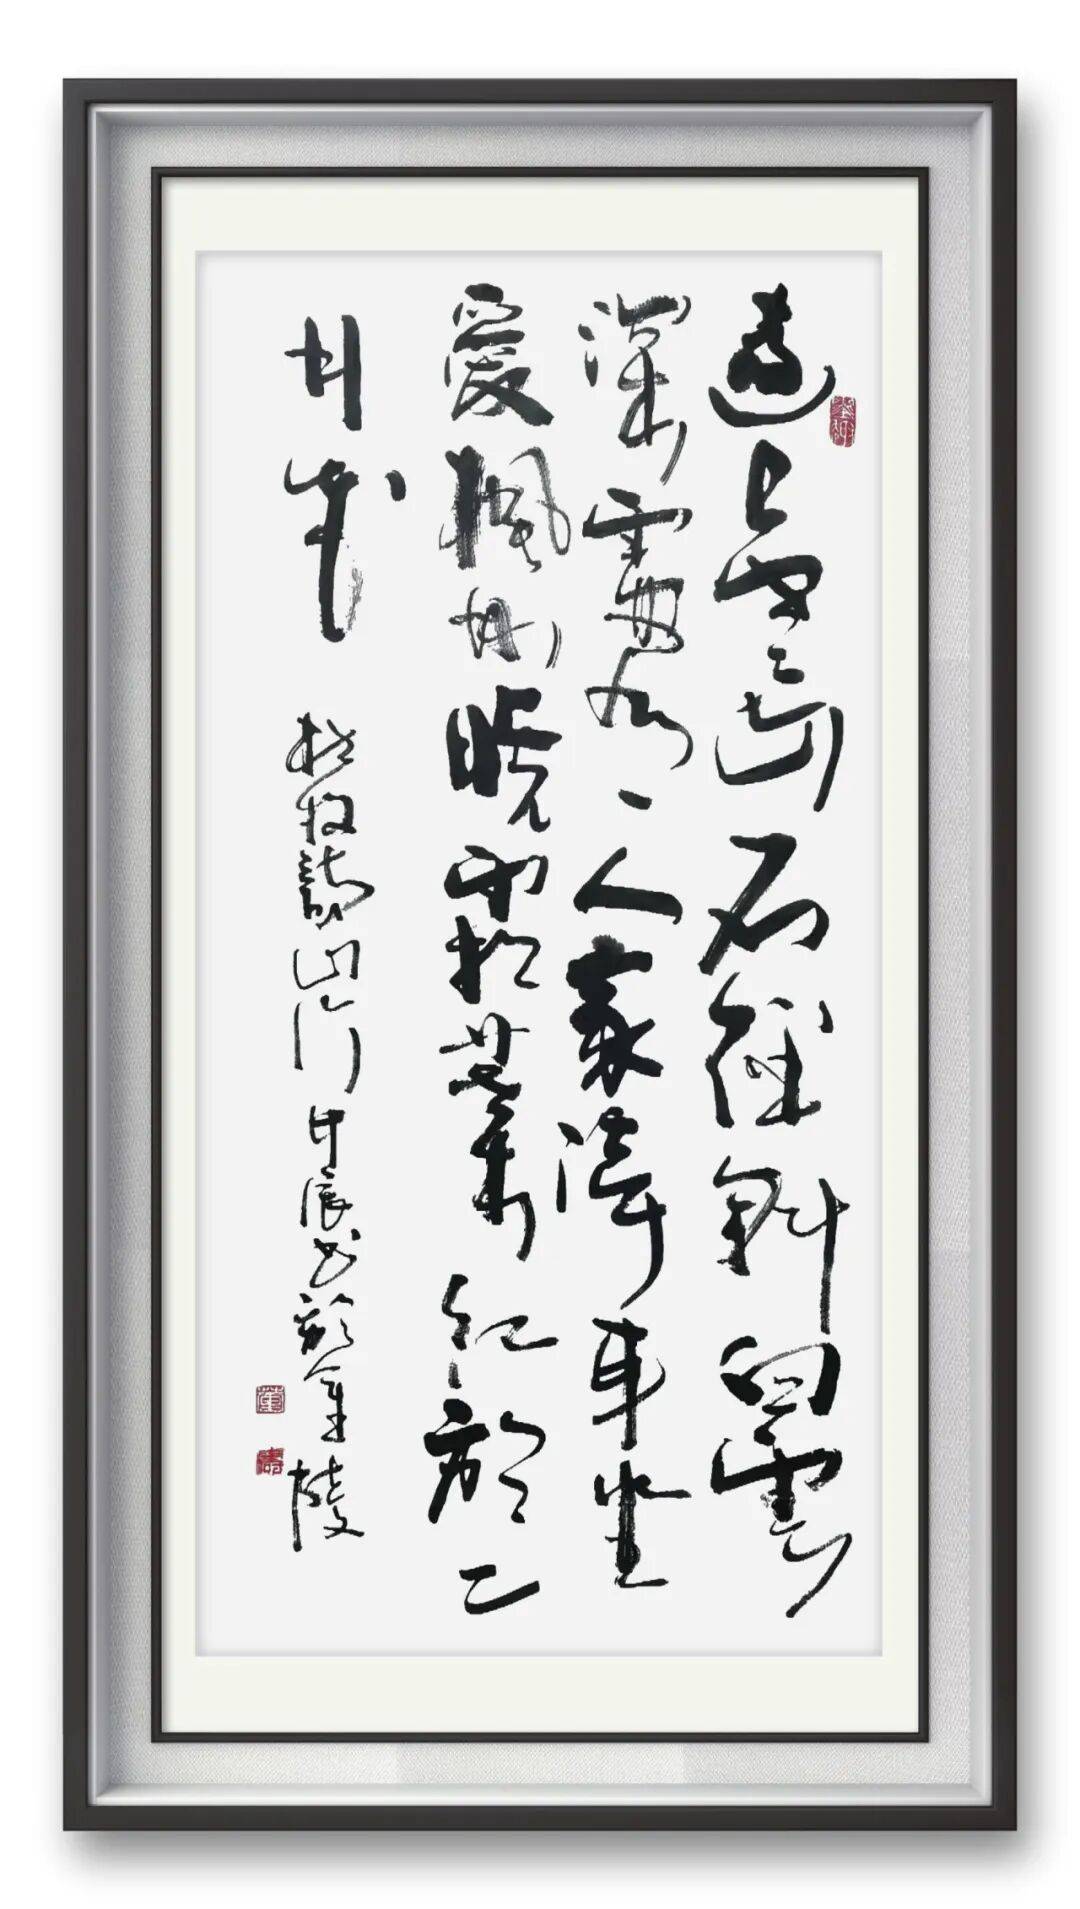 遠上寒山石徑斜白雲
深處有人家停車坐
愛楓林晚霜葉紅於二
月花 杜牧詩山行 甲辰书於金陵